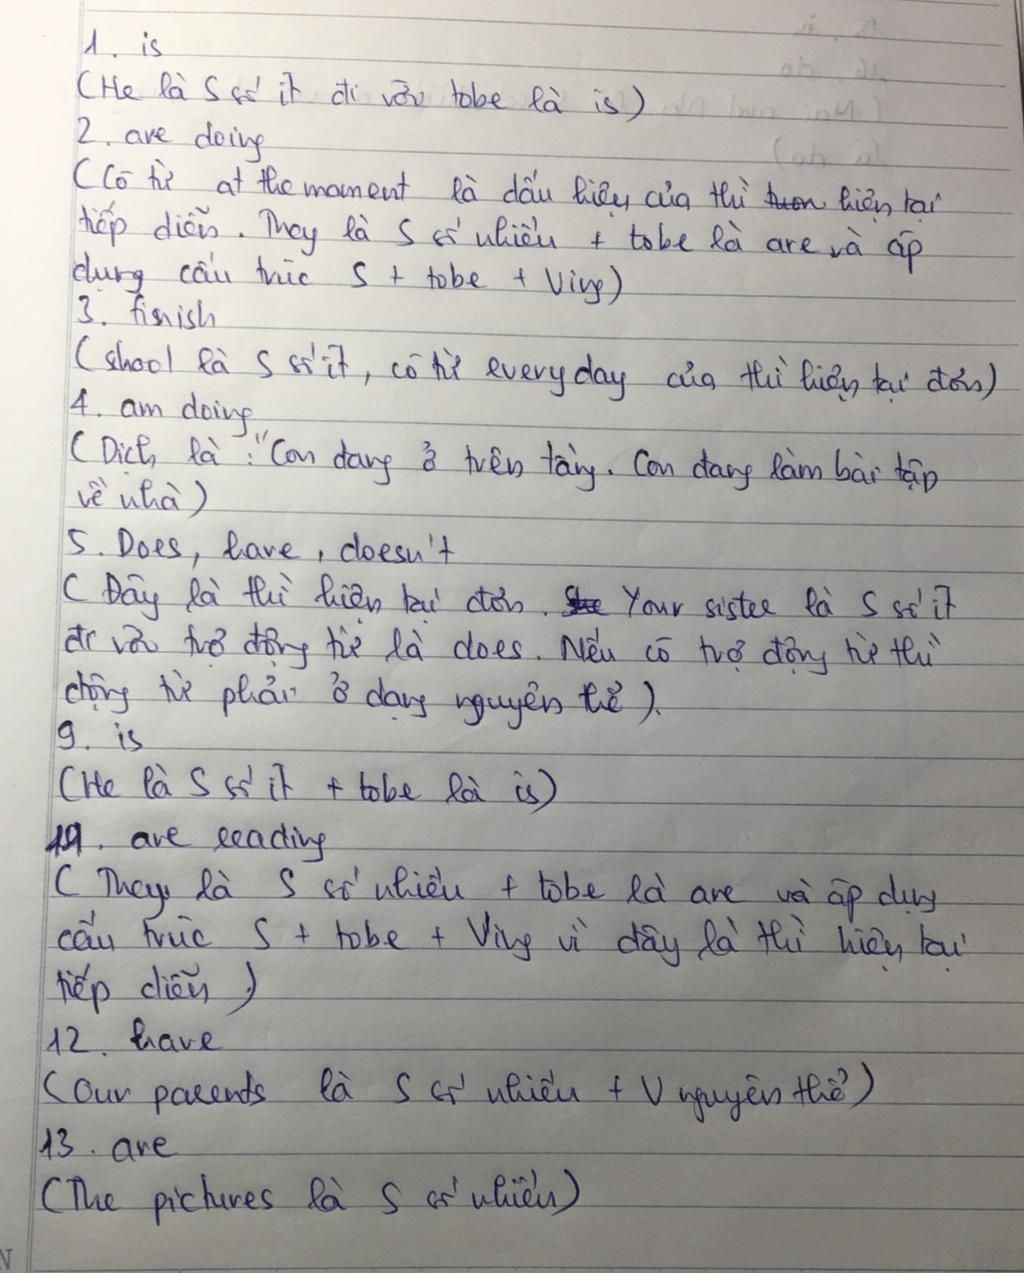 1. is
(He là S số ít đi với tobe là is)
2. are doing
(Có từ at the moment là dấu hiệu của thì hiện tại
tiếp diễn. They là S số nhiều + tobe là are và áp
dụng cấu trúc S + tobe + Ving)
3. finish
(shool là S số ít, có từ everyday của thì hiện tại đơn)
4. am doing
(Dịch là: "Con đang ở trên tầng. Con đang làm bài tập
về nhà)
5. Does, have, doesn't
(Đây là thì hiện tại đơn. Your sister là S số ít
đi với trợ động từ là does. Nếu có trợ động từ thì
động từ phải ở dạng nguyên thể).
9. is
(He là S số ít + tobe là is)
. are reading
(They là S số nhiều + tobe là are và áp dụng
cấu trúc S + tobe + Ving vì đây là thì hiện tại
tiếp diễn)
12. have
(Our parents là S số nhiều + V nguyên thể)
13. are
(The pictures là S số nhiều)